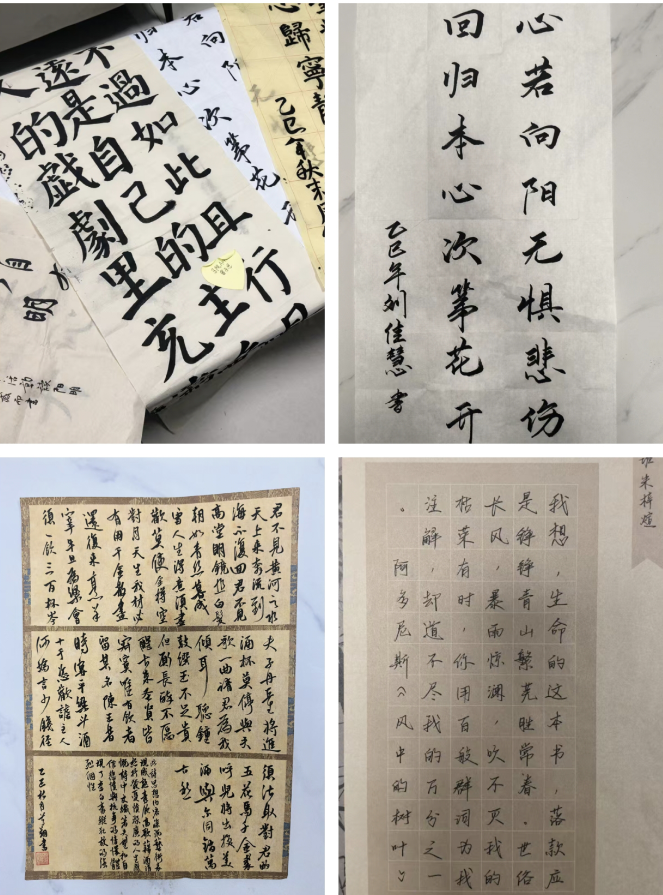 心歸寧靜
乙巳年秋末
若向阳
归本心次第花开
不過如此且行
遠是自己的主
的戲劇里充
明月
心若向阳无惧悲伤
回归本心次第花开
乙巳年刘佳慧书
君不見黃河之水
天上来奔流到
海不復回君不見
高堂明鏡悲白髮
朝如青丝暮成
雪人生得意須盡
歡莫使金樽空
對月天生我材必
有用千金散盡
還復来烹羊
宰牛且為樂會
須一飲三百杯岑
夫子丹丘生将進
酒杯莫停與君
歌一曲請君為我
傾耳聽鐘
鼓饌玉不足貴
但願長醉不復
醒古来圣賢皆
寂寞惟有飲者
留其名陳王昔
時宴平樂斗酒
十千恣歡謔主人
何為言少錢徑
須沽取對君酌
五花馬千金裘
呼兒将出換美
酒與尔同銷萬
古愁
班 朱梓煊
我想，生命的这本书，落款应
是铮铮青山繁芜胜常春。世俗
长风，暴雨惊澜，吹不灭我的
枯荣有时，你用百般群词为我
注解，却道不尽我的百万分之一
。阿多尼斯《风中的树叶》